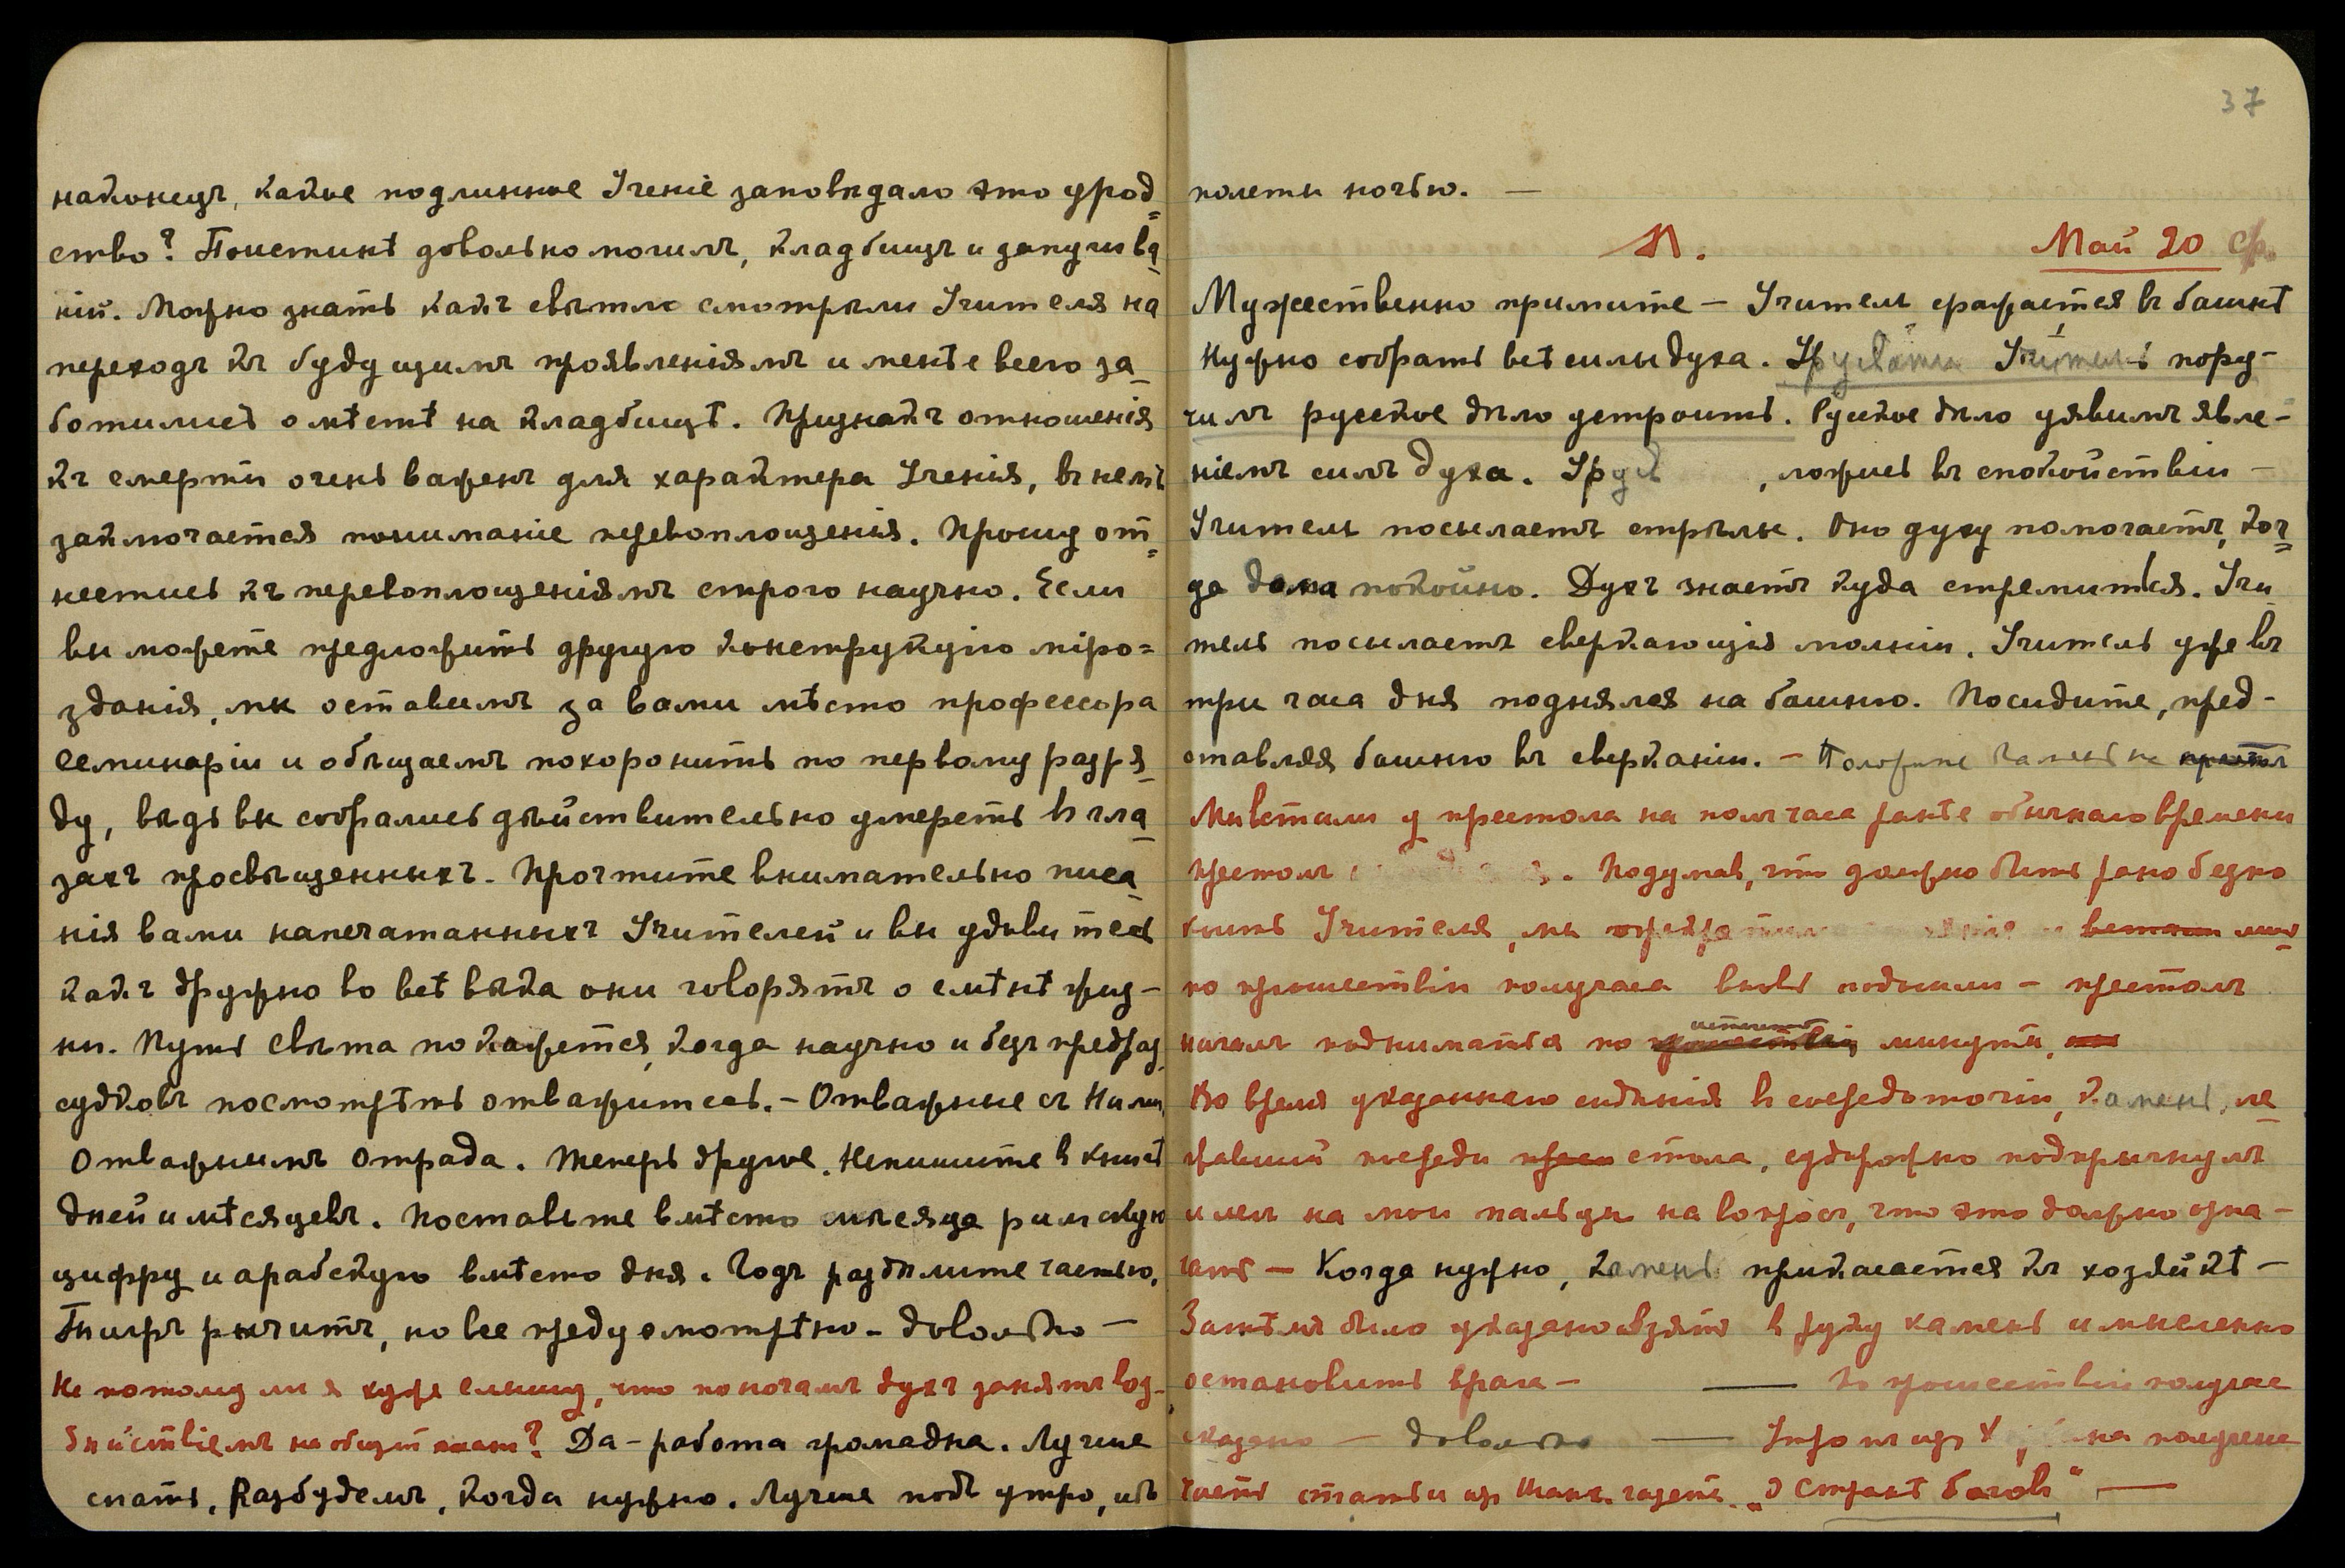 наконецъ, какое подлинное Ученіе заповѣдало это урод=
ство? Поистинѣ довольно могилъ, кладбищъ и запугива
ній. Можно знать какъ свѣтло смотрѣли Учителя на
переходъ къ будущимъ проявленіямъ и менѣе всего за
ботились о мѣстѣ на кладбищѣ. Признакъ отношенія
къ смерти очень важенъ для характера Ученія, въ немъ
заключается пониманіе перевоплощенія. Прошу от=
нестись къ перевоплощеніямъ строго научно. Если
вы можете предложить другую конструкцію міро=
зданія, мы оставимъ за вами мѣсто профессора
семинаріи и обѣщаемъ похоронить по первому разря
ду, вѣдь вы собрались дѣйствительно умереть въ гла
захъ просвѣщенныхъ. Прочтите внимательно писа
нія вами напечатанныхъ Учителей и вы удивитесь
какъ дружно во всѣ вѣка они говорятъ о смѣнѣ жиз-
ни. Путь Свѣта покажется, когда научно и безъ предраз
судковъ посмотрѣть отважитесь. - Отважные съ Нами,
Отважнымъ отрада. Теперь другое. Непишите въ книгѣ
дней и мѣсяцевъ. Поставьте вмѣсто мѣсяца римскую
цифру и арабскую вмѣсто дня. Годъ раздѣлите частью.
Тигръ рычитъ, но все предусмотрѣно - довольно —
Не потому ли я хуже слышу, что по ночамъ духъ занятъ воз-
дѣйствіемъ на общій планъ? Да - работа громадна. Лучше
спать. Разбудемъ, когда нужно. Лучше подъ утро, ибо
37
полеты ночью. —
Л. Май 20 ср.
Мужественно примите — Учитель сражается въ башнѣ
Нужно собрать всѣ силы духа. Урусвати Учитель пору-
чилъ русское дѣло устроить. Русское дѣло уявимъ явле-
ніемъ силъ духа. Урус , ложись въ спокойствіи —
Учитель посылаетъ стрѣлы. Оно духу помогаетъ, ког=
да дома покойно. Духъ знаетъ куда стремиться. Учи
тель посылаетъ сверкающія молніи. Учитель уже въ
три часа дня поднялся на башню. Посидите, пред-
ставляя башню въ сверканіи. — Положите камень на
Мы встали у престола на полъ часа ранѣе обычнаго времени
престолъ . Подумавъ, что должно быть рано безпо
коить Учителя, мы
по прошествіи получаса вновь — престолъ
началъ подниматься по истеченіи минуты,
Во время указаннаго сидѣнія въ средоточіи, камень, ле
жавшій посреди стола, судорожно подпрыгнулъ
и легъ на мои пальцы на вопросъ, что это должно озна-
чать — Когда нужно, камень прикасается къ хозяйкѣ —
Затѣмъ было указано взять въ руку камень и мысленно
остановить врага — —— по прошествіи получаса
сказано — довольно —— Утромъ изъ на получены
части статьи изъ Шанх. газеты „О Странѣ боговъ“ —